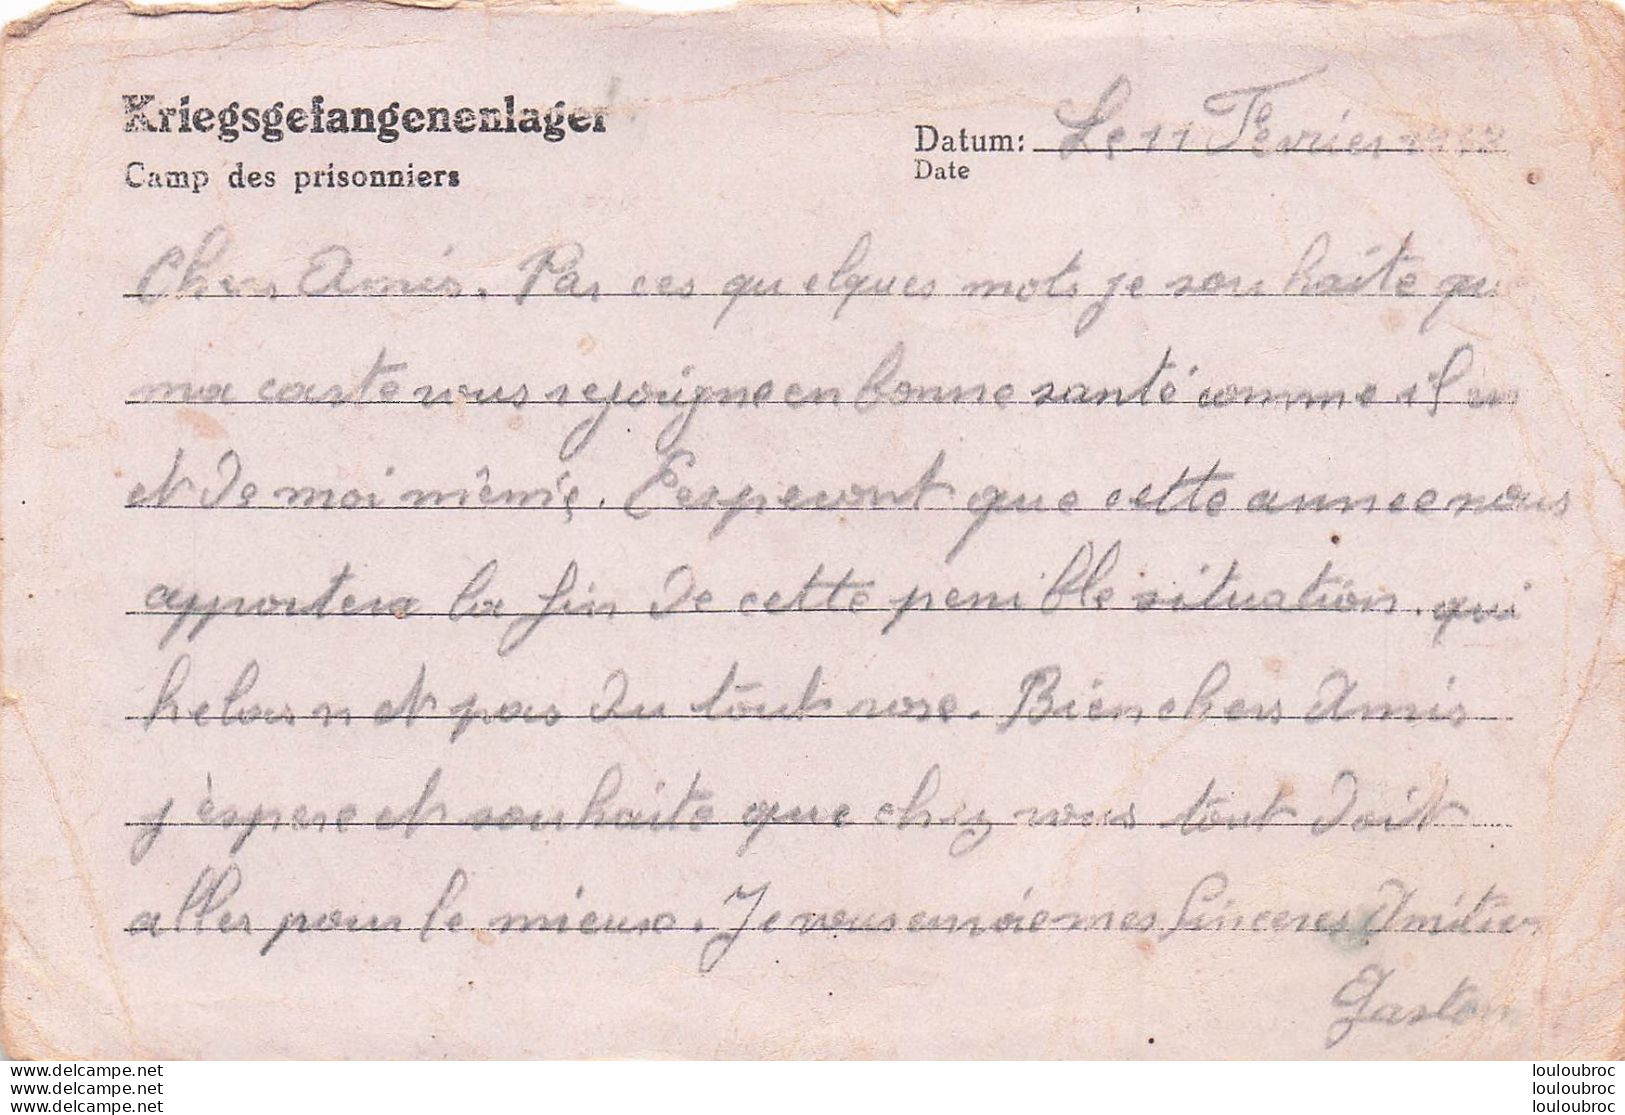 Kriegsgefangenenlager
Camp des prisonniers
Datum: Le 11 Fevrier
Date
Chers Amis. Par ces quelques mots je souhaite que
ma carte vous rejoigne en bonne santé comme il en
et de moi même. Eesperont que cette annee nous
apportera la fin de cette penible situation. qui
helas n et pas du tout rose. Bien chers Amis
j'espere et souhaite que chez vous tout doit
aller pour le mieux. Je vous envoie mes sinceres Amitier
Gaston
www.delcampe.net
www.delcampe.net
www.delcampe.net
louloubroc
louloubroc
louloubroc